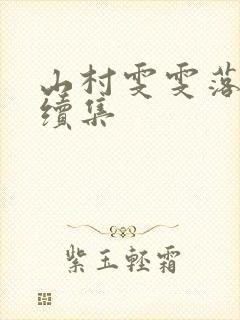 山村雯雯落
續集
紫玉輕霜